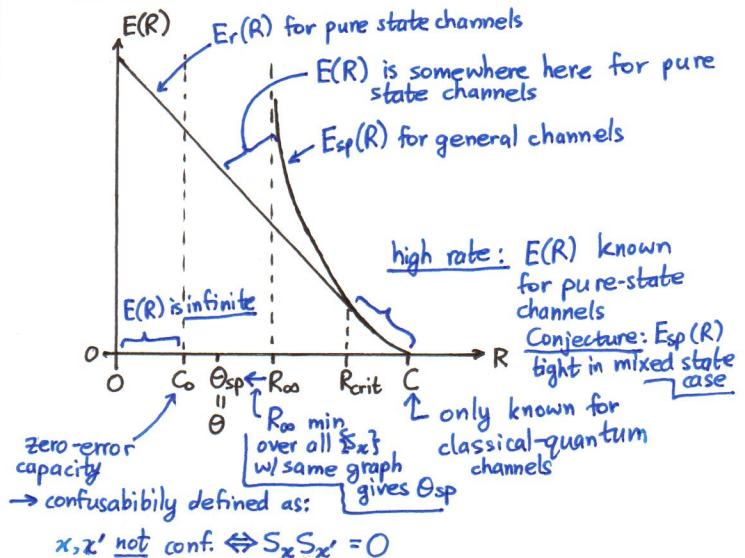 E(R)
Er(R) for pure state channels
E(R) is somewhere here for pure
state channels
Esp(R) for general channels
high rate: E(R) known
for pure-state
channels
Conjecture: Esp(R)
tight in mixed state
case
E(R) is infinite
0
R
0 C₀ Θsp ← R∞ Rcrit C
=
Θ
R∞ min
over all {Sx}
w/ same graph
gives Θsp
only known for
classical-quantum
channels
zero-error
capacity
→ confusabibily defined as:
x, x' not conf. ⇔ SxSx' = 0